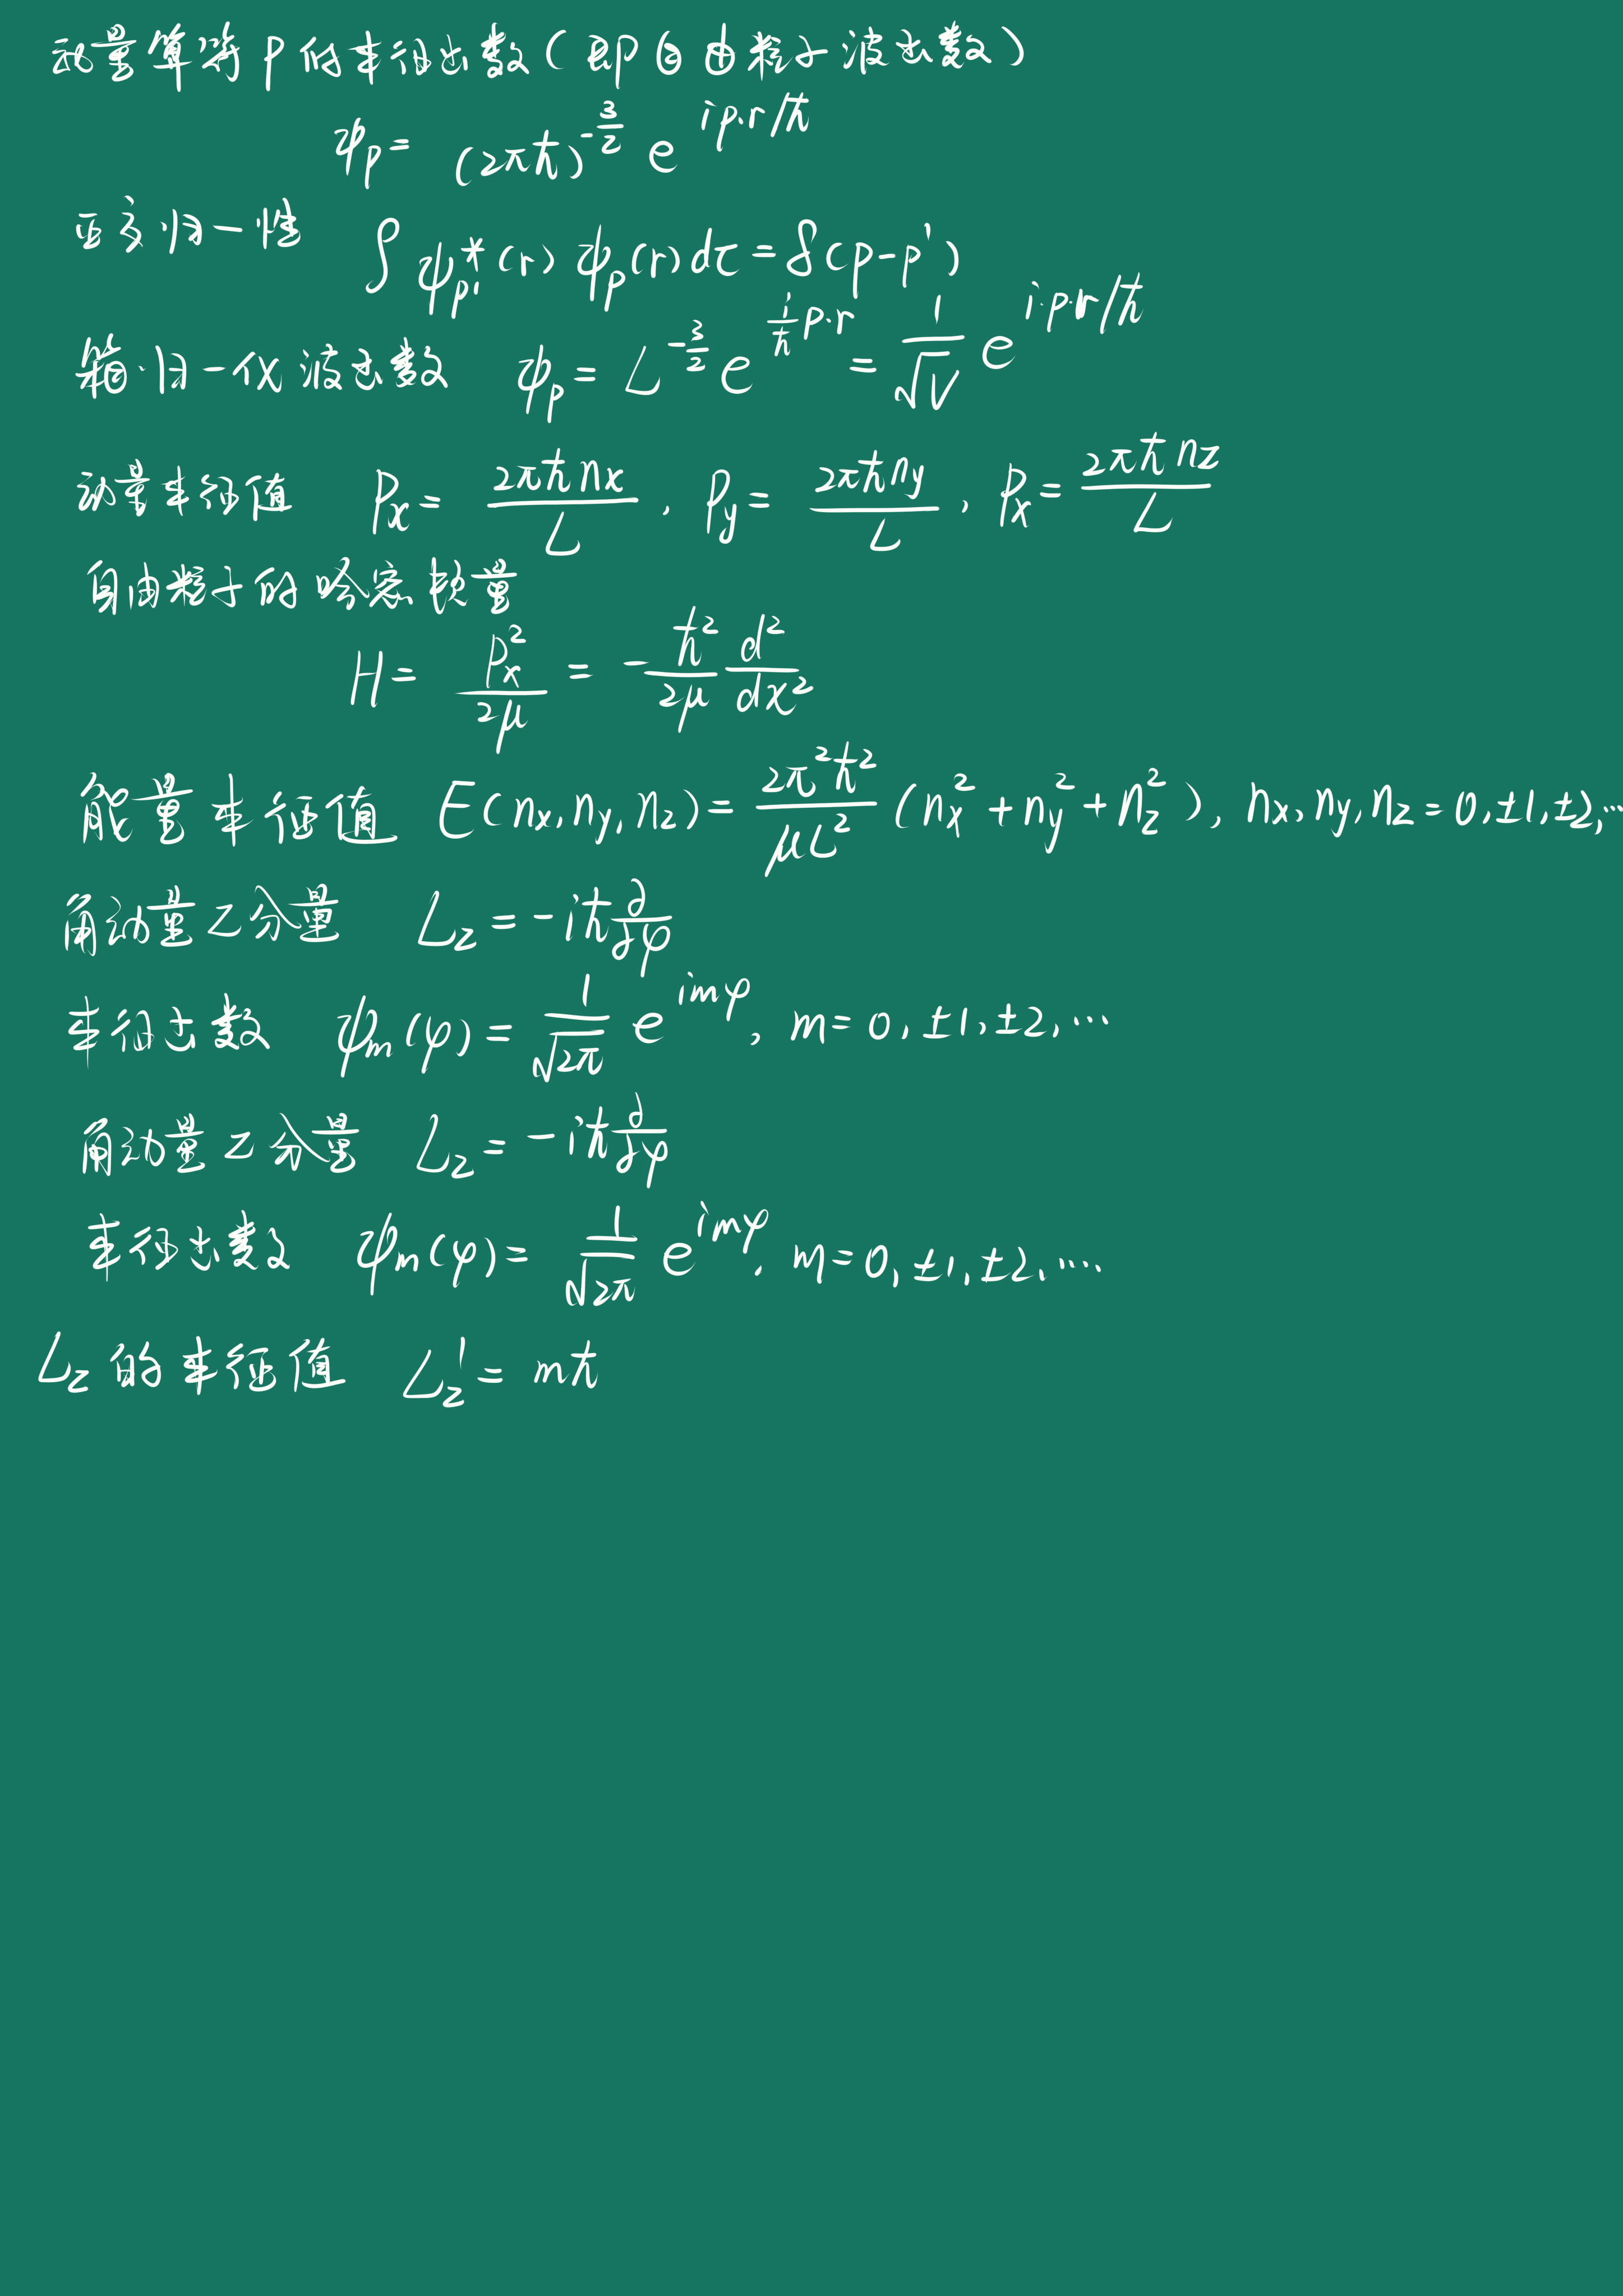 动量算符P的本征函数(即自由粒子波函数)
ψ_p = (2πħ)^{-3/2} e^{ip·r/ħ}
正交归一性 ∫ψ_{p'}^*(r) ψ_p(r)dτ = δ(p-p')
箱归一化波函数 ψ_p = L^{-3/2} e^{\frac{i}{ħ}p·r} = \frac{1}{\sqrt{V}} e^{i·p·r/ħ}
动量本征值 P_x = \frac{2πħn_x}{L}, P_y = \frac{2πħn_y}{L}, P_x = \frac{2πħn_z}{L}
自由粒子的哈密顿量
H = \frac{P_x^2}{2μ} = -\frac{ħ^2}{2μ}\frac{d^2}{dx^2}
能量本征值 E(n_x, n_y, n_z) = \frac{2π^2ħ^2}{μL^2}(n_x^2 + n_y^2 + n_z^2), n_x, n_y, n_z = 0, ±1, ±2, …
角动量Z分量 L_z = -iħ\frac{∂}{∂φ}
本征函数 ψ_m(φ) = \frac{1}{\sqrt{2π}} e^{imφ}, m = 0, ±1, ±2, …
角动量Z分量 L_z = -iħ\frac{∂}{∂φ}
本征函数 ψ_m(φ) = \frac{1}{\sqrt{2π}} e^{imφ}, m = 0, ±1, ±2, ….
L_z的本征值 L_z' = mħ